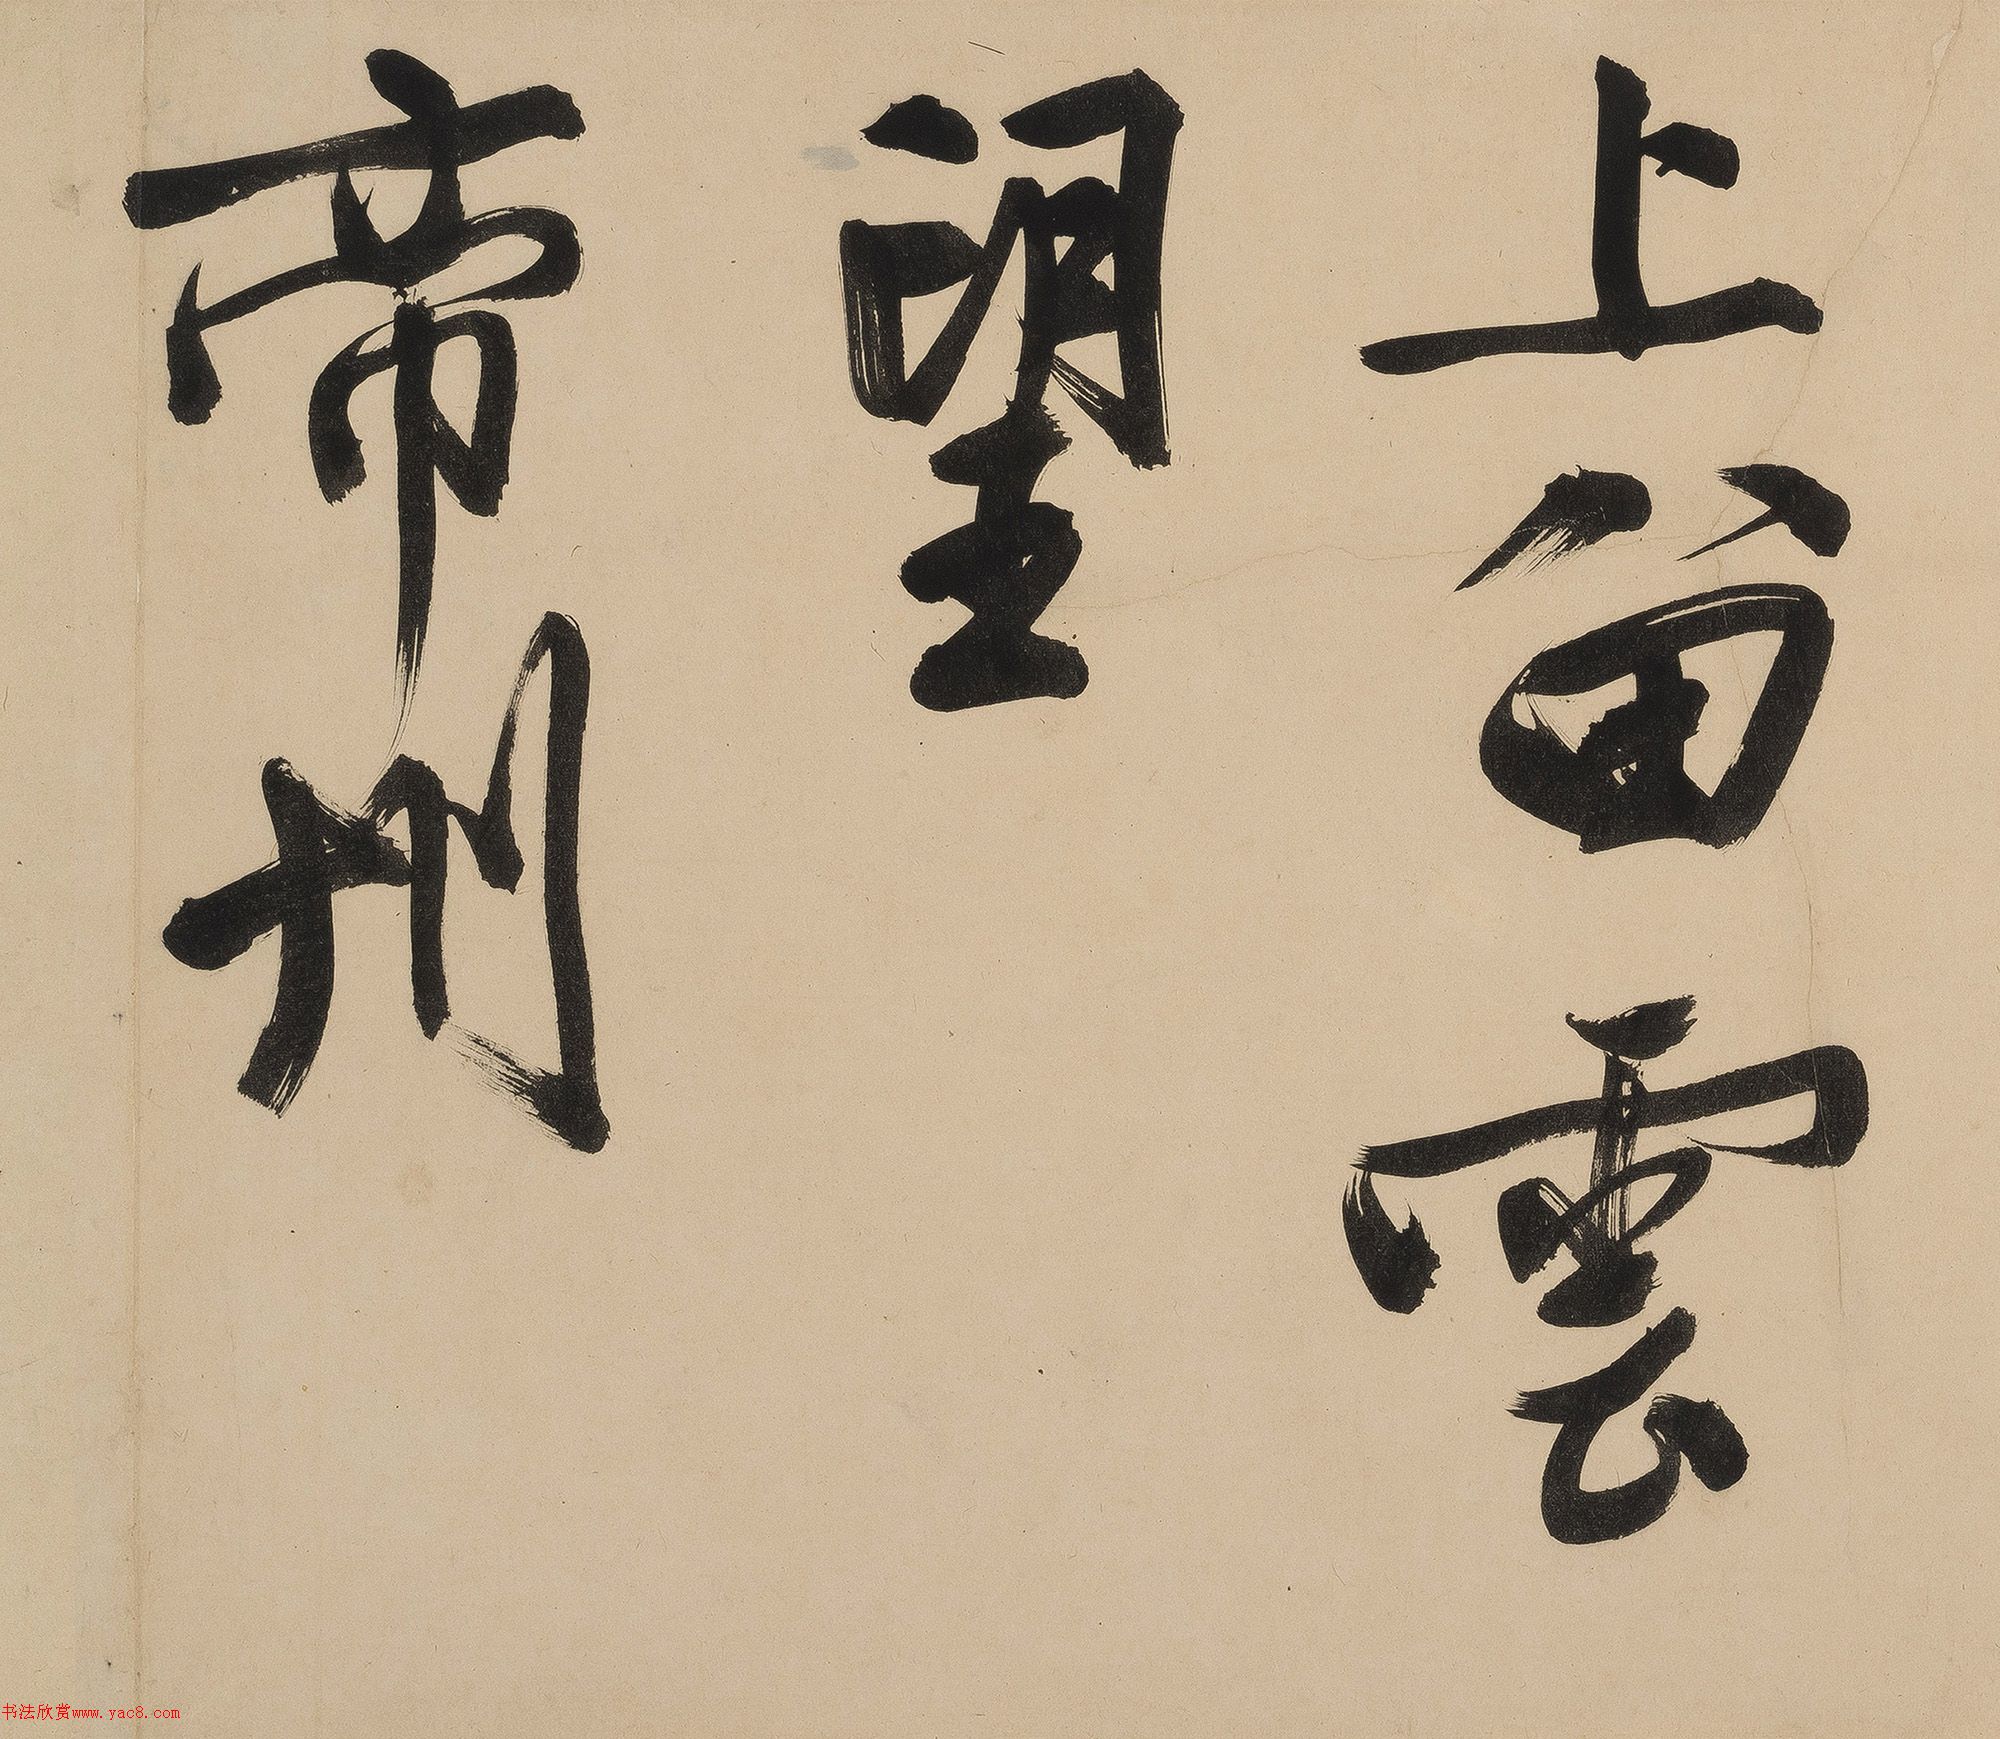 上留雲
望
帝州
书法欣赏www.yac8.com